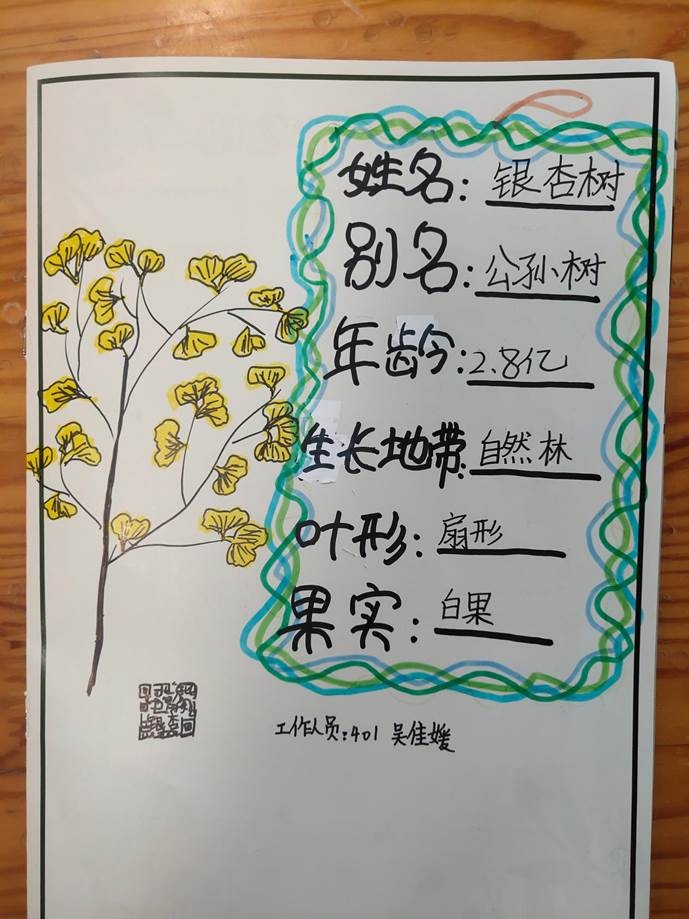 姓名：银杏树
别名：公孙树
年龄：2.8亿
生长地带：自然林
叶形：扇形
果实：白果
工作人员：401 吴佳媛